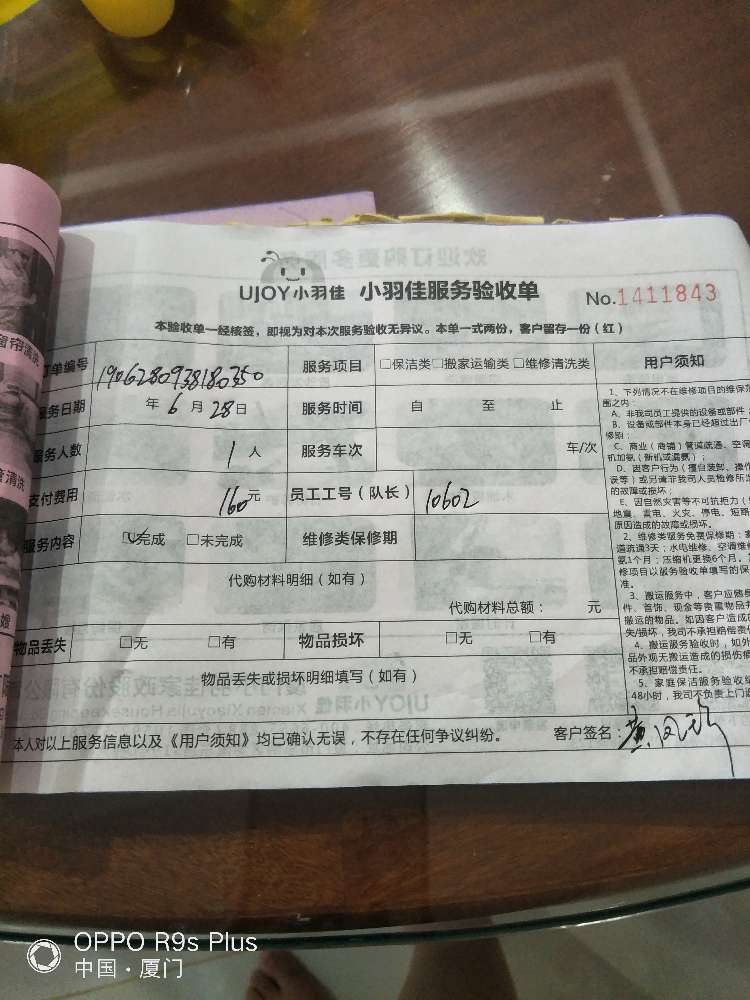 UJOY小羽佳 小羽佳服务验收单
No.1411843
本验收单一经核签，即视为对本次服务验收无异议。本单一式两份，客户留存一份（红）
订单编号 1906280938180350 服务项目 □保洁类□搬家运输类□维修清洗类 用户须知
服务日期 年6月28日 服务时间 自 至 止
服务人数 1人 服务车次 车/次
支付费用 160元 员工工号（队长） 10602
服务内容 ☑完成 □未完成 维修类保修期
代购材料明细（如有）
代购材料总额： 元
物品丢失 □无 □有 物品损坏 □无 □有
物品丢失或损坏明细填写（如有）
本人对以上服务信息以及《用户须知》均已确认无误，不存在任何争议纠纷。 客户签名：黄
1、下列情况不在维修项目的维保范
围之内：
A、非我司员工提供的设备或部件
B、设备或部件本身已经超过出厂
修期；
C、商业（商铺）管道疏通、空调
机加氨（新机或漏氨）；
D、因客户行为（擅自装卸、操作
误等）或另请非我司人员检修所
的故障或损坏；
E、因自然灾害等不可抗拒力（
地震、雷电、火灾、停电、短路
原因造成的故障或损坏。
2、维修类服务免费保修期：
道疏通3天；水电维修、空调维
氨1个月；压缩机更换6个月。
修项目以服务验收单填写的保
准。
3、搬运服务中，客户应随
件、首饰、现金等贵重物品
搬运的物品。如因客户造成
失/损坏，我司不承担赔偿责
4、搬运服务验收时，如外
品外观无搬运造成的损伤
不承担赔偿责任。
5、家庭保洁服务验收
48小时，我司不负责上门
OPPO R9s Plus
中国·厦门